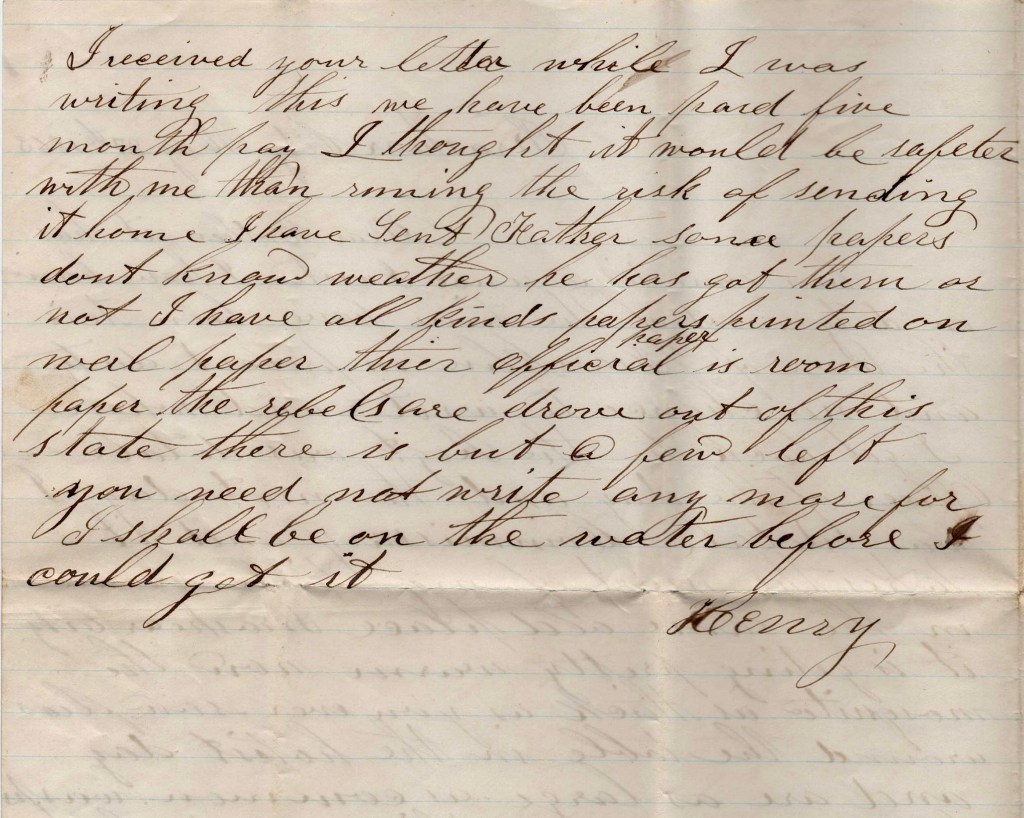 I received your letter while I was
writing this we have been paid five
month pay I thought it would be safeter
with me than runing the risk of sending
it home I have Sent Father some papers
dont know weather he has got them or
not I have all kinds papers printed on
paper
wal paper thier official is room
paper the rebels are drove out of this
state there is but a few left
you need not write any more for
I shall be on the water before I
could get it
Henry